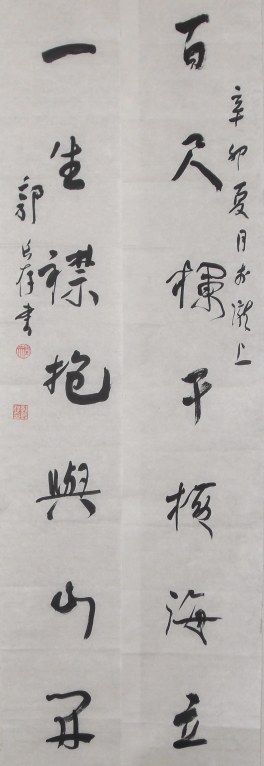 辛卯夏月於上
百尺欄干橫海立
一生襟抱與山開
郭書